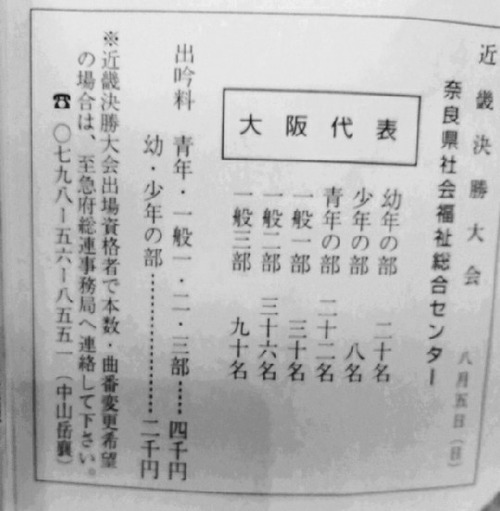 近畿決勝大会　八月五日（日）
奈良県社会福祉総合センター
大阪代表
幼年の部　二十名
少年の部　八名
青年の部　二十二名
一般一部　三十名
一般二部　三十六名
一般三部　九十名
出吟料　青年・一般一・二・三部……四千円
幼・少年の部………………二千円
※近畿決勝大会出場資格者で本数・曲番変更希望
の場合は、至急府総連事務局へ連絡して下さい。
☎〇七九八ー五六ー八五五一（中山岳襄）